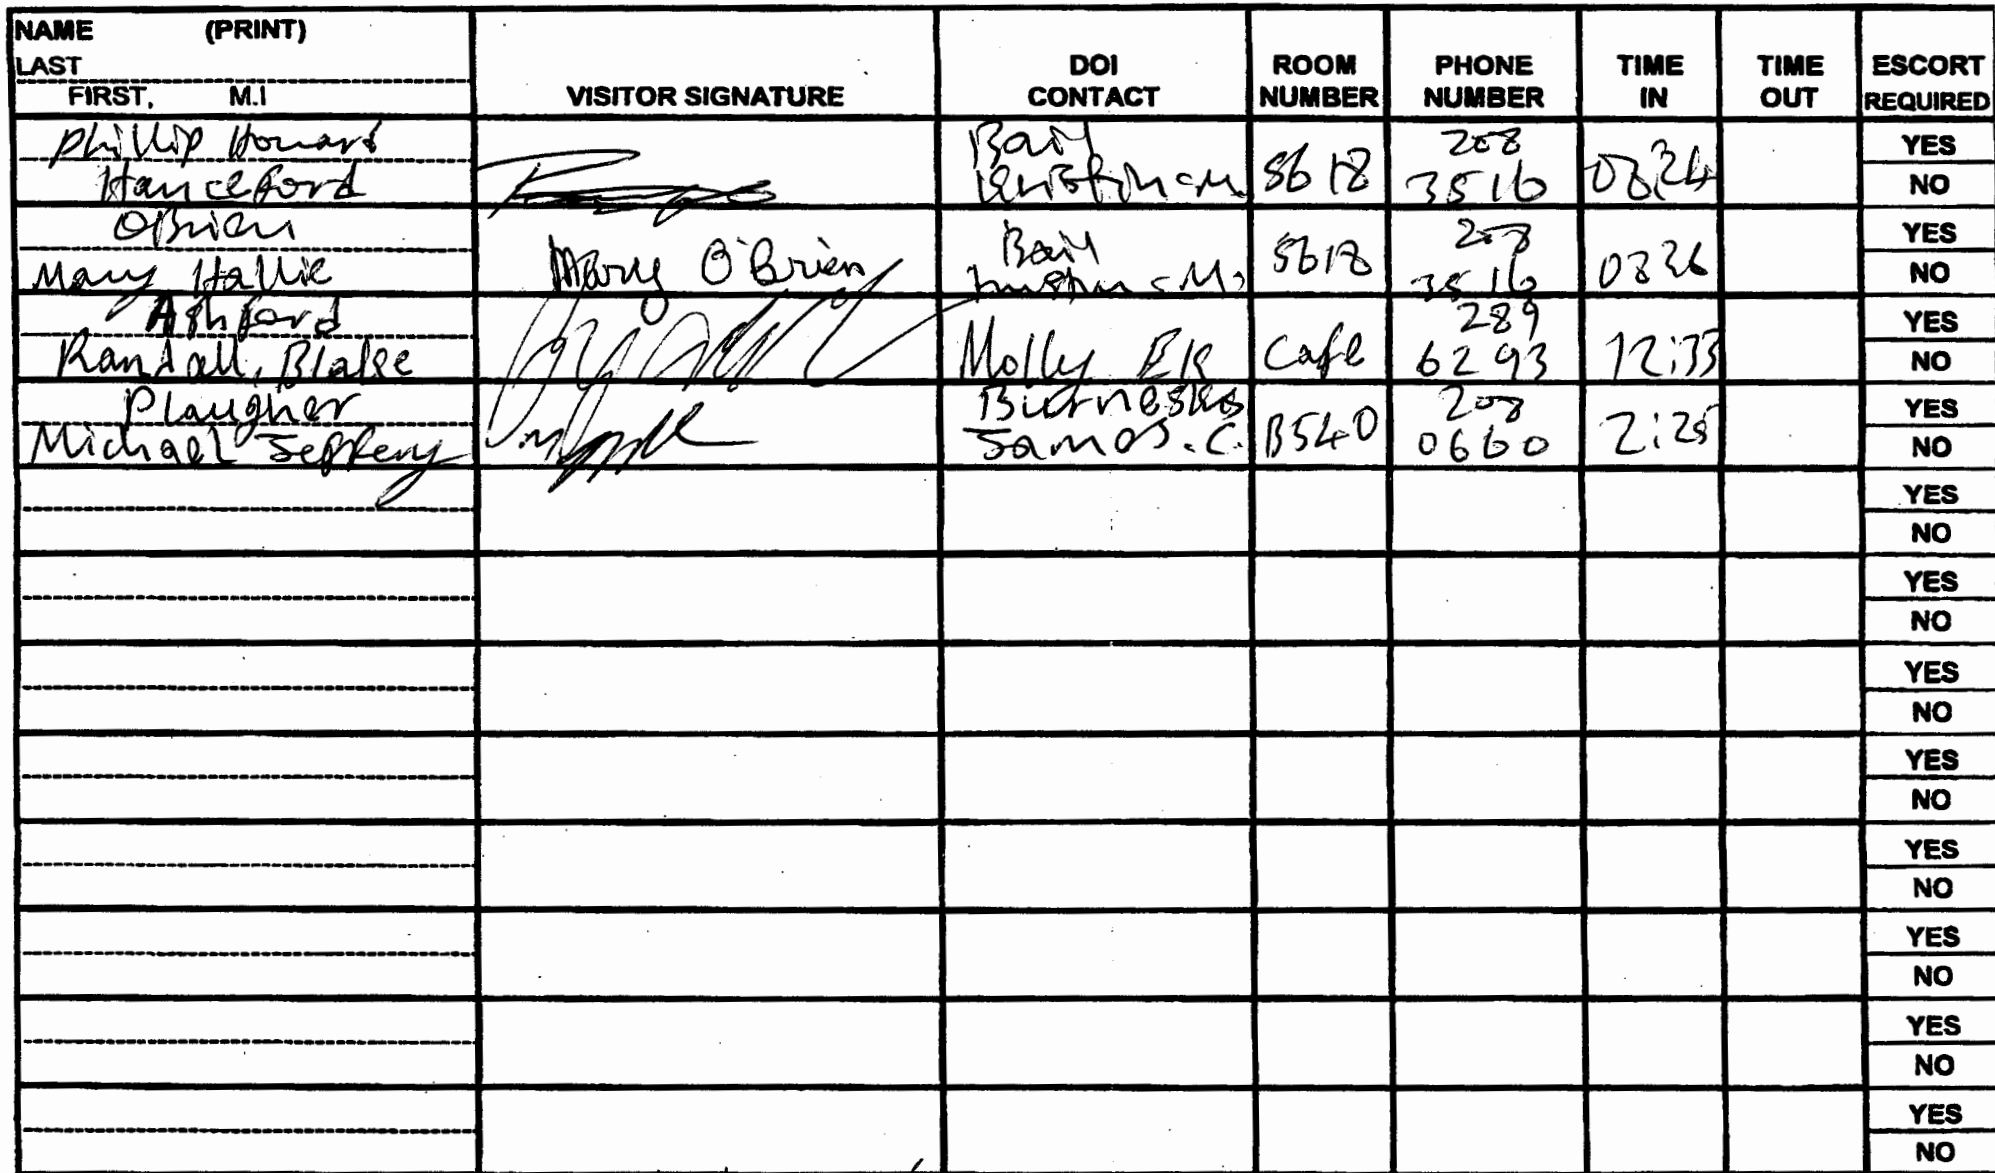 NAME (PRINT)
LAST
FIRST, M.I
VISITOR SIGNATURE
DOI CONTACT
ROOM NUMBER
PHONE NUMBER
TIME IN
TIME OUT
ESCORT REQUIRED
Phillip Howard
Hanceford
Bail
5618
208
3516
0824
YES
NO
OBrien
Mary Hallie
Mary O'Brien
Bail
5618
208
3516
0826
YES
NO
Ashford
Randall, Blake
Molly Ek
Cafe
289
6293
12:33
YES
NO
Plaugher
Michael Jeffery
Burneske
James. C.
B540
208
0660
2:25
YES
NO
YES
NO
YES
NO
YES
NO
YES
NO
YES
NO
YES
NO
YES
NO
YES
NO